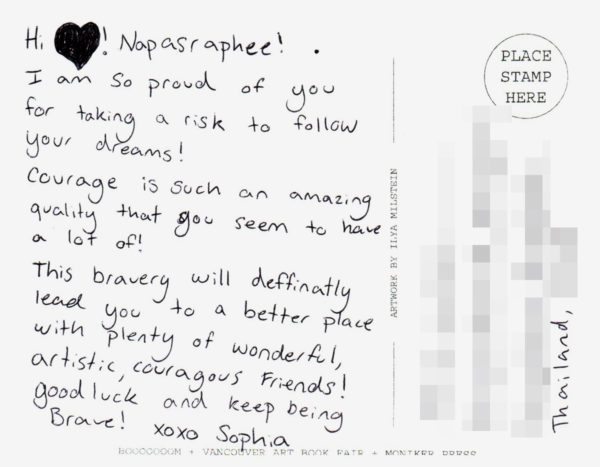 Hi ♥! Napasraphee! .
I am so proud of you
for taking a risk to follow
your dreams!
Courage is such an amazing
quality that you seem to have
a lot of!
This bravery will deffinatly
lead you to a better place
with plenty of wonderful,
artistic, couragous Friends!
good luck and keep being
Brave! xoxo Sophia
BOOOOOOOM + VANCOUVER ART BOOK FAIR + MONIKER PRESS
ARTWORK BY ILYA MILSTEIN
PLACE
STAMP
HERE
Thailand,